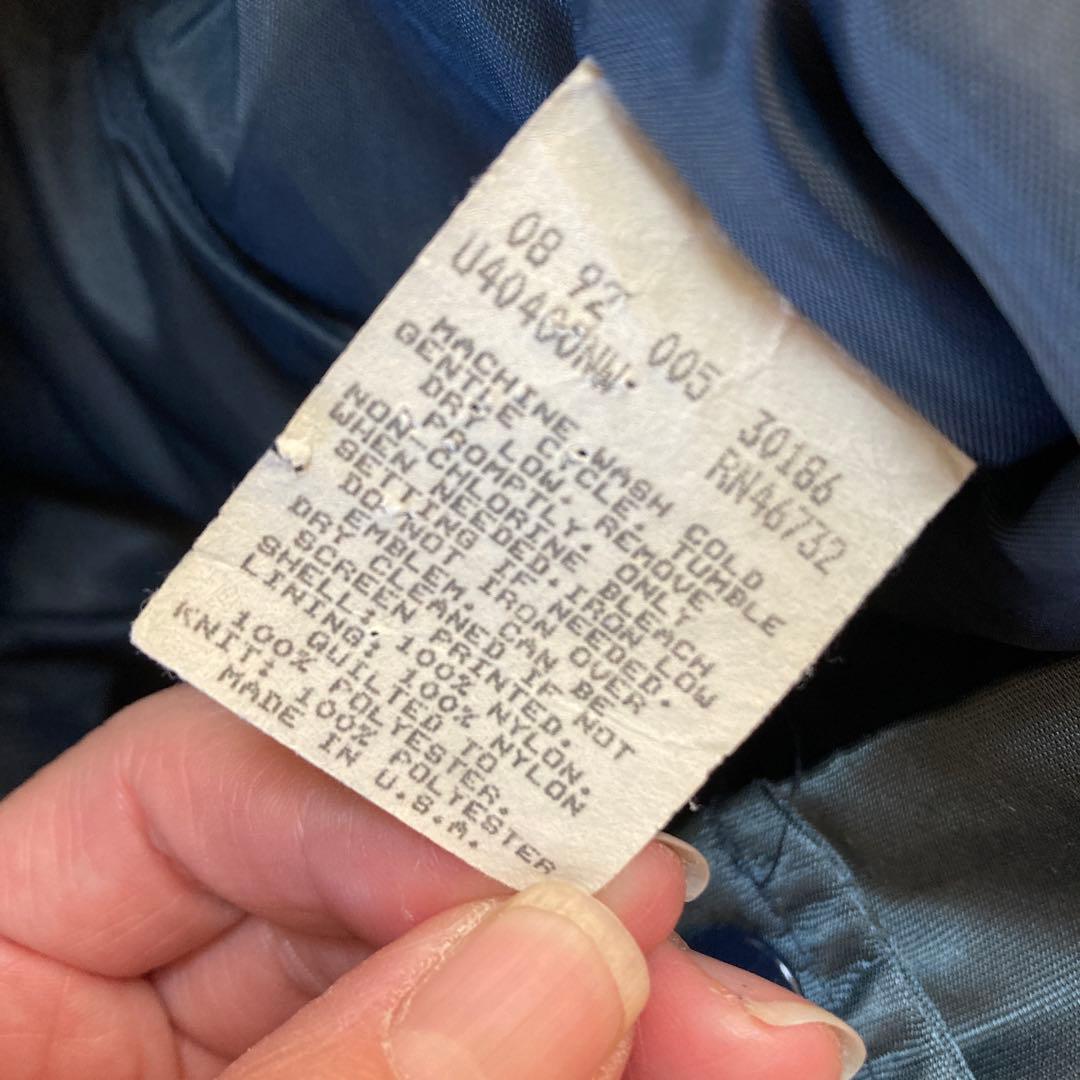 08 92 005 30186
U404G0NW. RN46732
MACHINE WASH COLD
GENTLE CYCLE. TUMBLE
DRY LOW. REMOVE
PROMPTLY. ONLY
NON-CHLORINE BLEACH
WHEN NEEDED. IRON LOW
SETTING IF NEEDED.
DO NOT IRON OVER
EMBLEM. CAN BE
DRY CLEANED IF
SCREEN PRINTED. NOT
SHELL: 100% NYLON.
LINING: 100% NYLON
QUILTED TO
100% POLYESTER.
KNIT: 100% POLYESTER
MADE IN U.S.A.